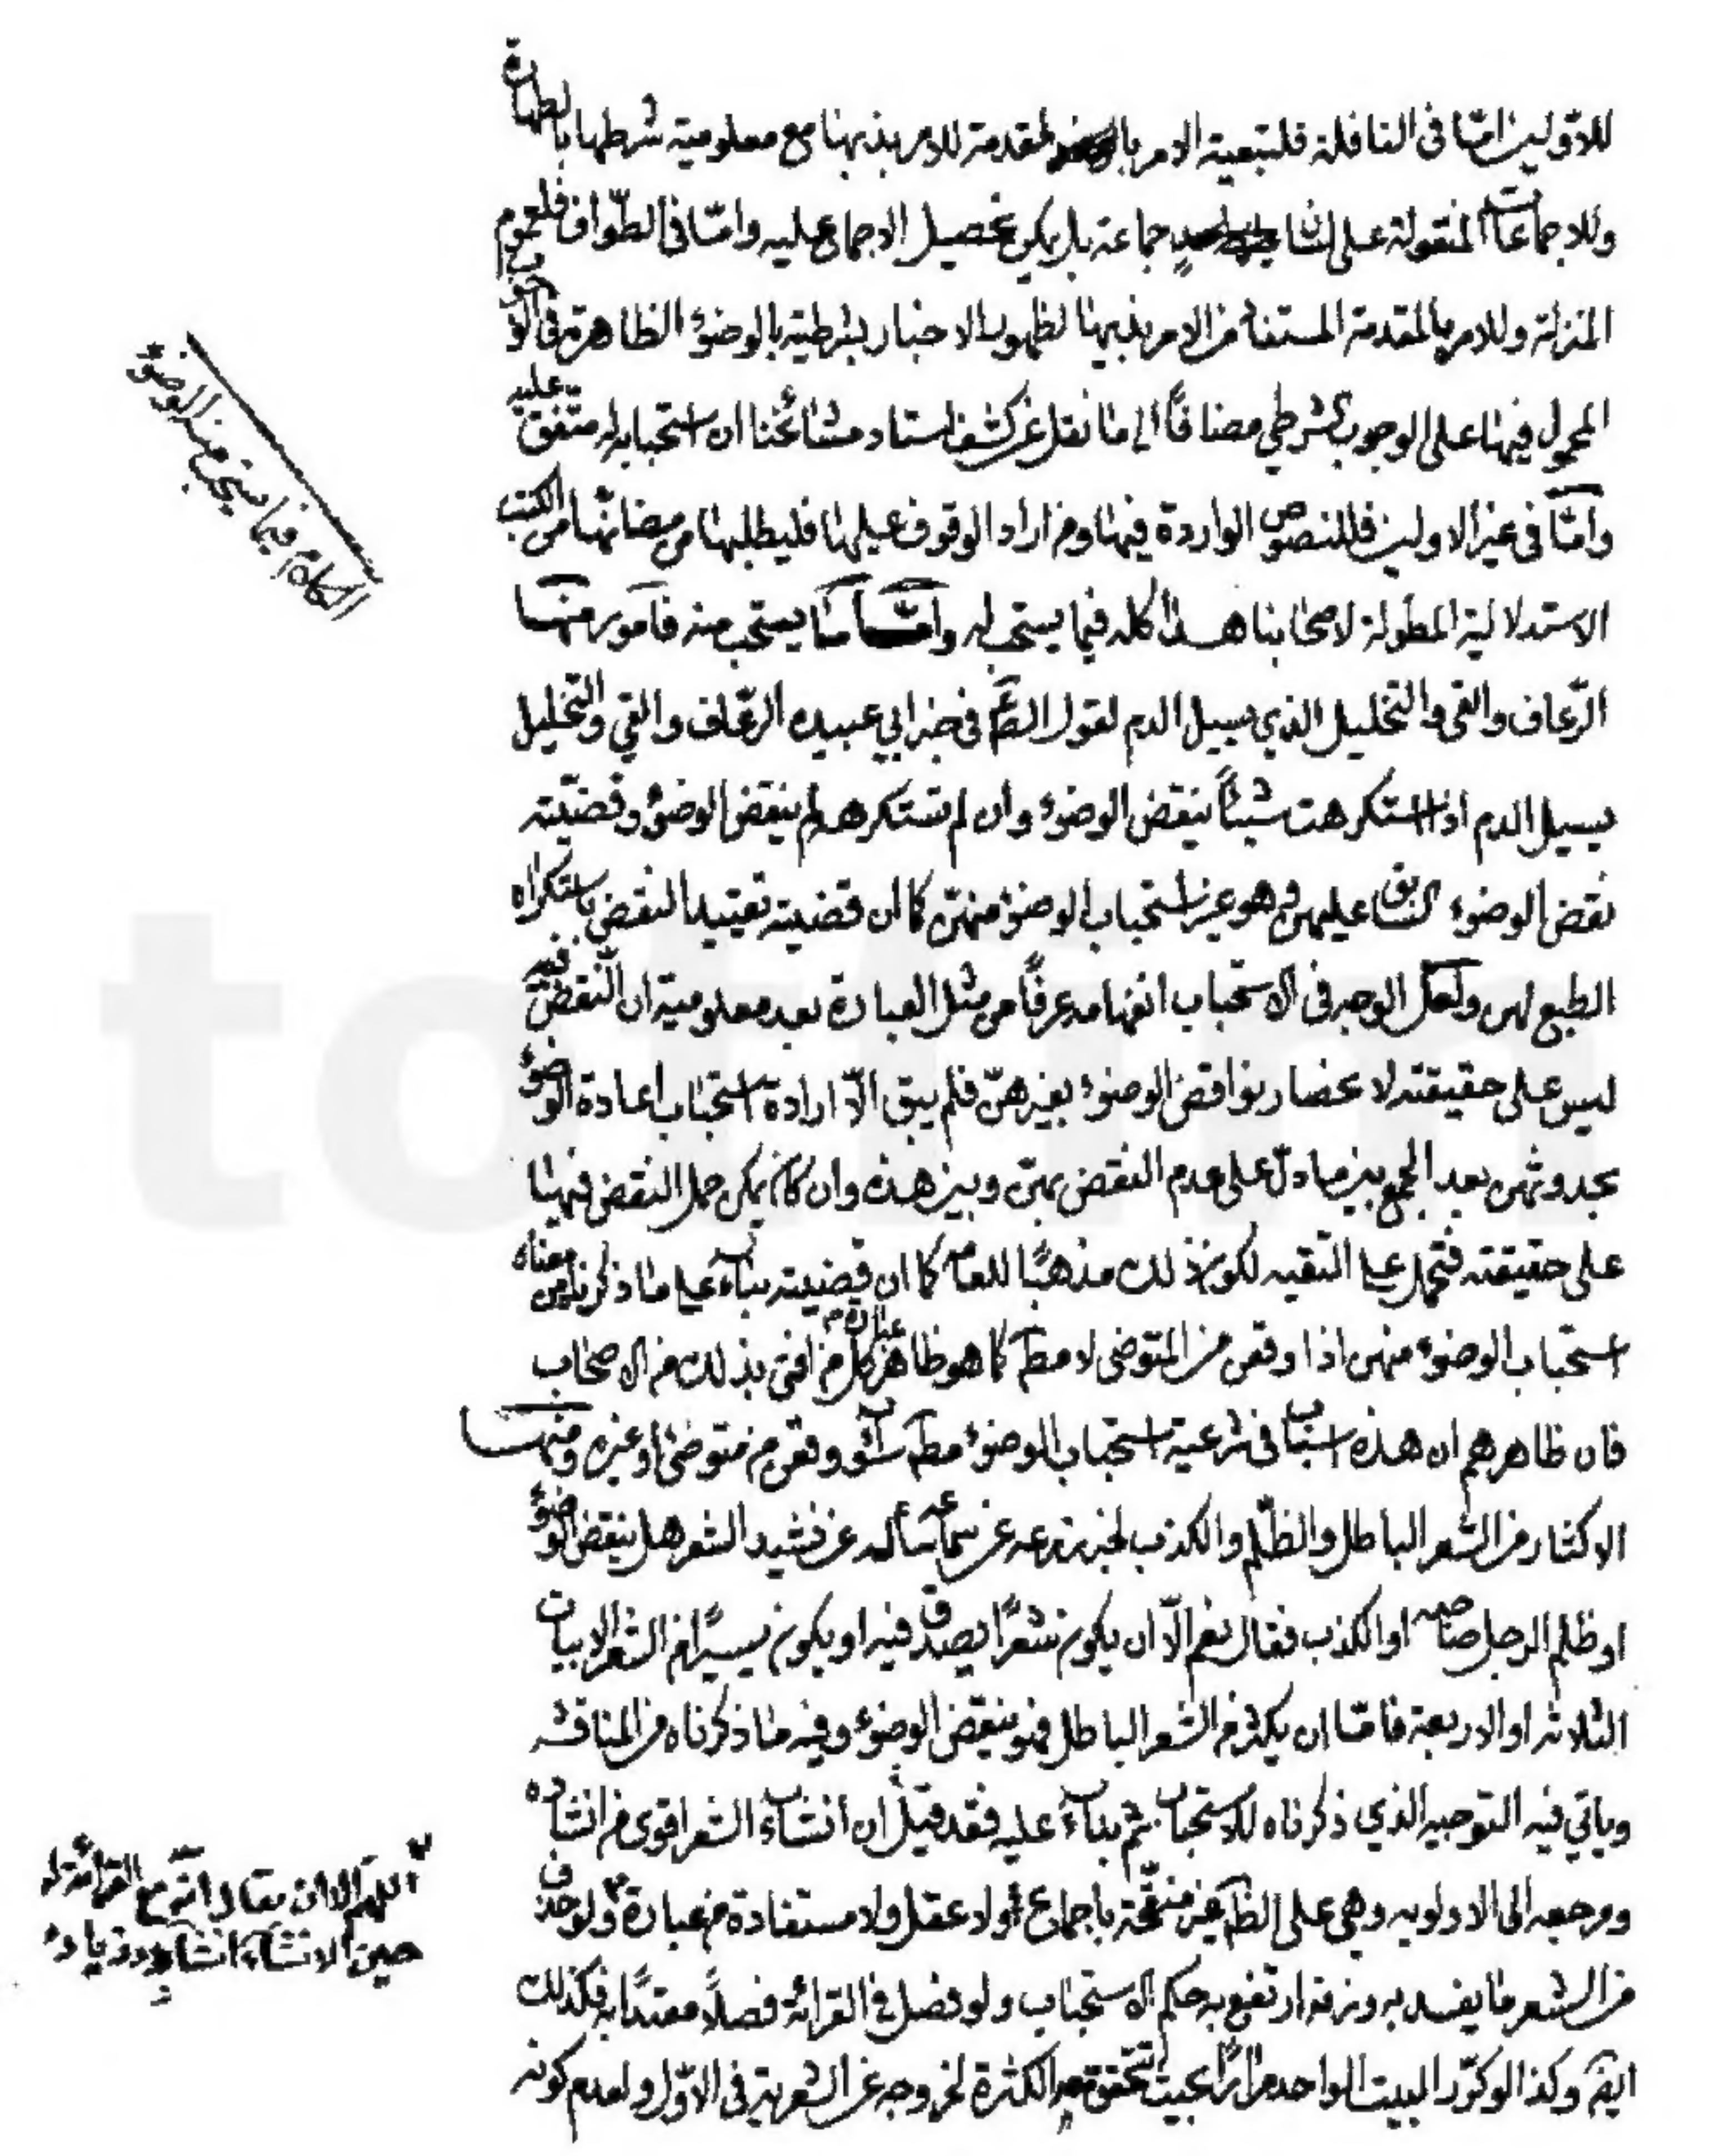 للاولين امّا فى النافلة فلتبعية الامر بالمقدمة للامر بذيها مع معلومية شرطها بالطهارة
وللاجماعات المنقولة على لسان جماعة بل يمكن تحصيل الاجماع عليه وامّا فى الطّواف فلعموم
المنزلة وللامر بالمقدمة المستفاد من الامر بذيها لظهور الاخبار بشرطيته بالوضوء الظاهرة فى الوجوب
المحمول فيها على الوجوب الشرطي مضافاً الى ما نقل عن كشف استاد مشائخنا ان استحبابه له متفق عليه
وامّا فى غير الاولين فللنصوص الواردة فيها ومن اراد الوقوف عليها فليطلبها من مضانّها من الكتب
الاستدلالية المطولة لاصحابنا هذا كله فيما يستحب له وامّا ما يستحب منه فامور منها
الرّعاف والقى والتخليل الذي يسيل الدم لقول الصّ ع فى خبر ابي عبيده الرّعاف والقي والتخليل
يسيل الدم اذا استكرهت شيئاً ينقض الوضوء وان لم تستكرهه لم ينقض الوضوء وقضيّته
نقض الوضوء السابق عليهن وهو غير استحباب الوضوء منهنّ كما ان قضيته تقييد النقض باستكراه
الطبع لهن ولعل الوجه فى الاستحباب انفهامه عرفًا من مثل العبارة بعد معلومية ان النّقض فيه
ليس على حقيقته لانحصار نواقض الوضوء بغيرهنّ فلم يبق الّا ارادة استحباب اعادة الوضوء
بحدوثهن بعد الجمع بين ما دلّ على عدم النقض بهنّ وبين هذه وان كان يمكن حمل النقض فيها
على حقيقته فتحمل على التقيه لكون ذلك مذهبًا للعامة كما ان قضيته بناء على ما ذكرنا من معناه
استحباب الوضوء منهن اذا وقعن من المتوضى لا مطلقا كما هو ظاهر عبارة كل من افتى بذلك من الاصحاب
فان ظاهرهم ان هذه اسباب فى شرعية استحباب الوضوء مطلقا سواء وقعن من متوضئ او غيره ومنها
الاكثار من الشعر الباطل والظّلم والكذب لخبر زرعه عن سماعه سأله عن نشيد الشعر هل ينقض الوضوء
او ظلم الرجل صاحبه او الكذب فقال نعم الّا ان يكون شعرًا يصدق فيه او يكون يسيرًا من الشعر الابيات
الثلاثه او الاربعة فامّا ان يكثر من الشعر الباطل فهو ينقض الوضوء وفيه ما ذكرناه من المناقشه
وياتي فيه التوجيه الذي ذكرناه للاستحباب ثم بناء عليه فقد قيل ان انشاء الشعر اقوى من انشاده
ومرجعه الى الاولويه وهي على الظ غير منقّحة باجماع ولا عقل ولا مستفادة من عبارة ولو حذف
من الشعر ما يفسد به وزنه ارتفع به حكم الاستحباب ولو فصل فى القرائه فصلاً معتدًا به فكذلك
ايضا وكذا لو كرّر البيت الواحد مرارًا بحيث تتحقق معه الكثرة لخروجه عن الشعرية فى الاوّل ولعدم كونه
الكلام فيما يستحب منه الوضوء
اللهم الا ان يقال انّه مع القرائة له
حين الانشاء انشاد وزيادة